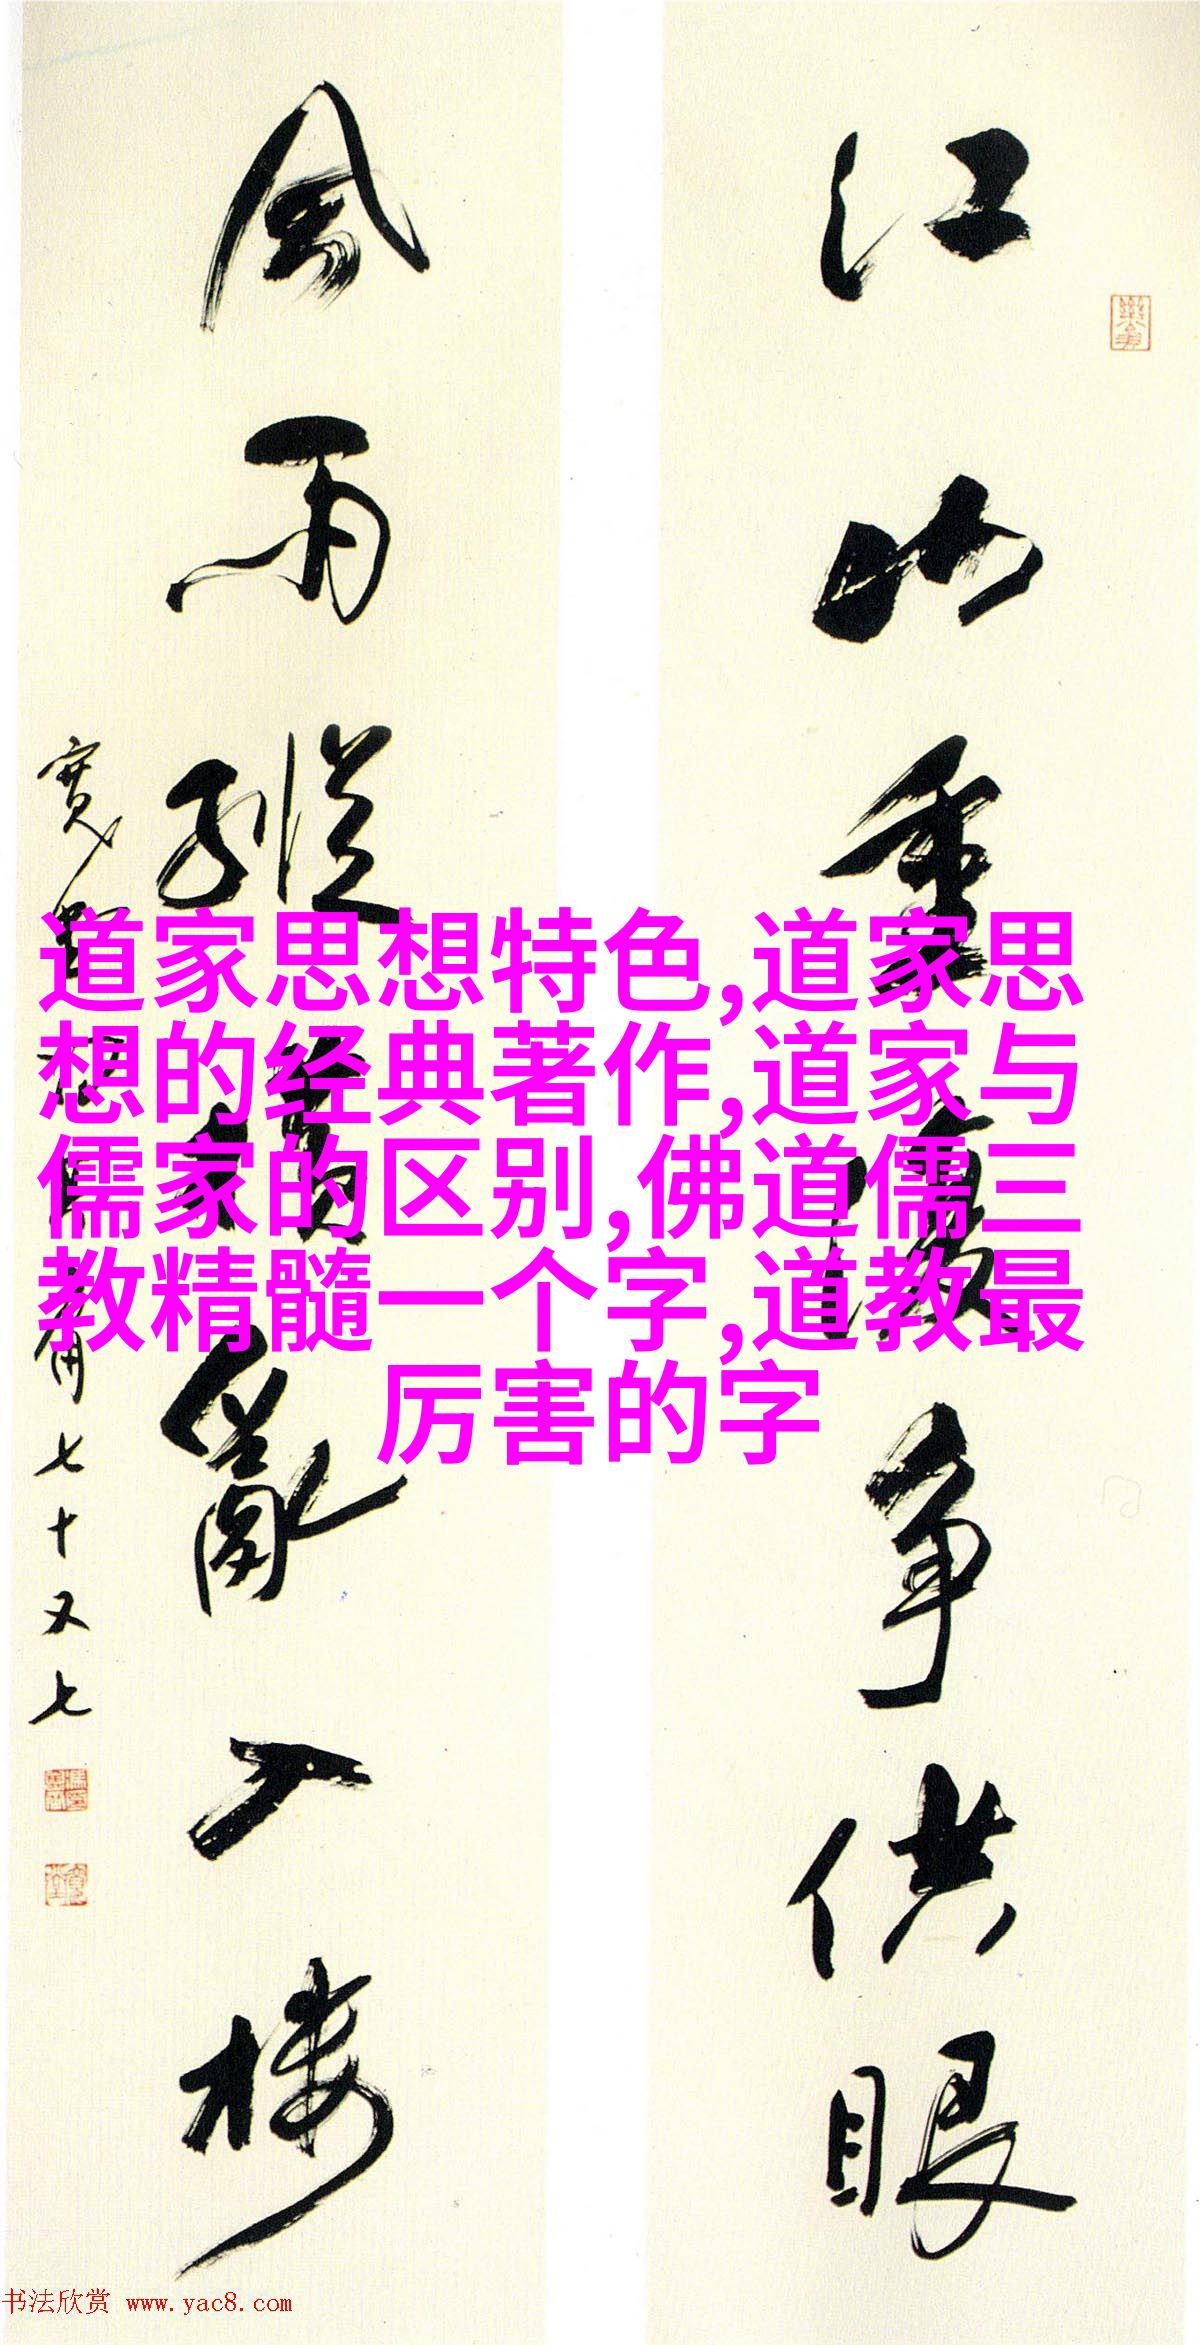 江山重複争供眼
風雨縱橫亂入樓
七十又七
道家思想特色,道家思
想的经典著作,道家与
儒家的区别,佛道儒三
教精髓一个字,道教最
厉害的字
书法欣赏 www.yac8.com